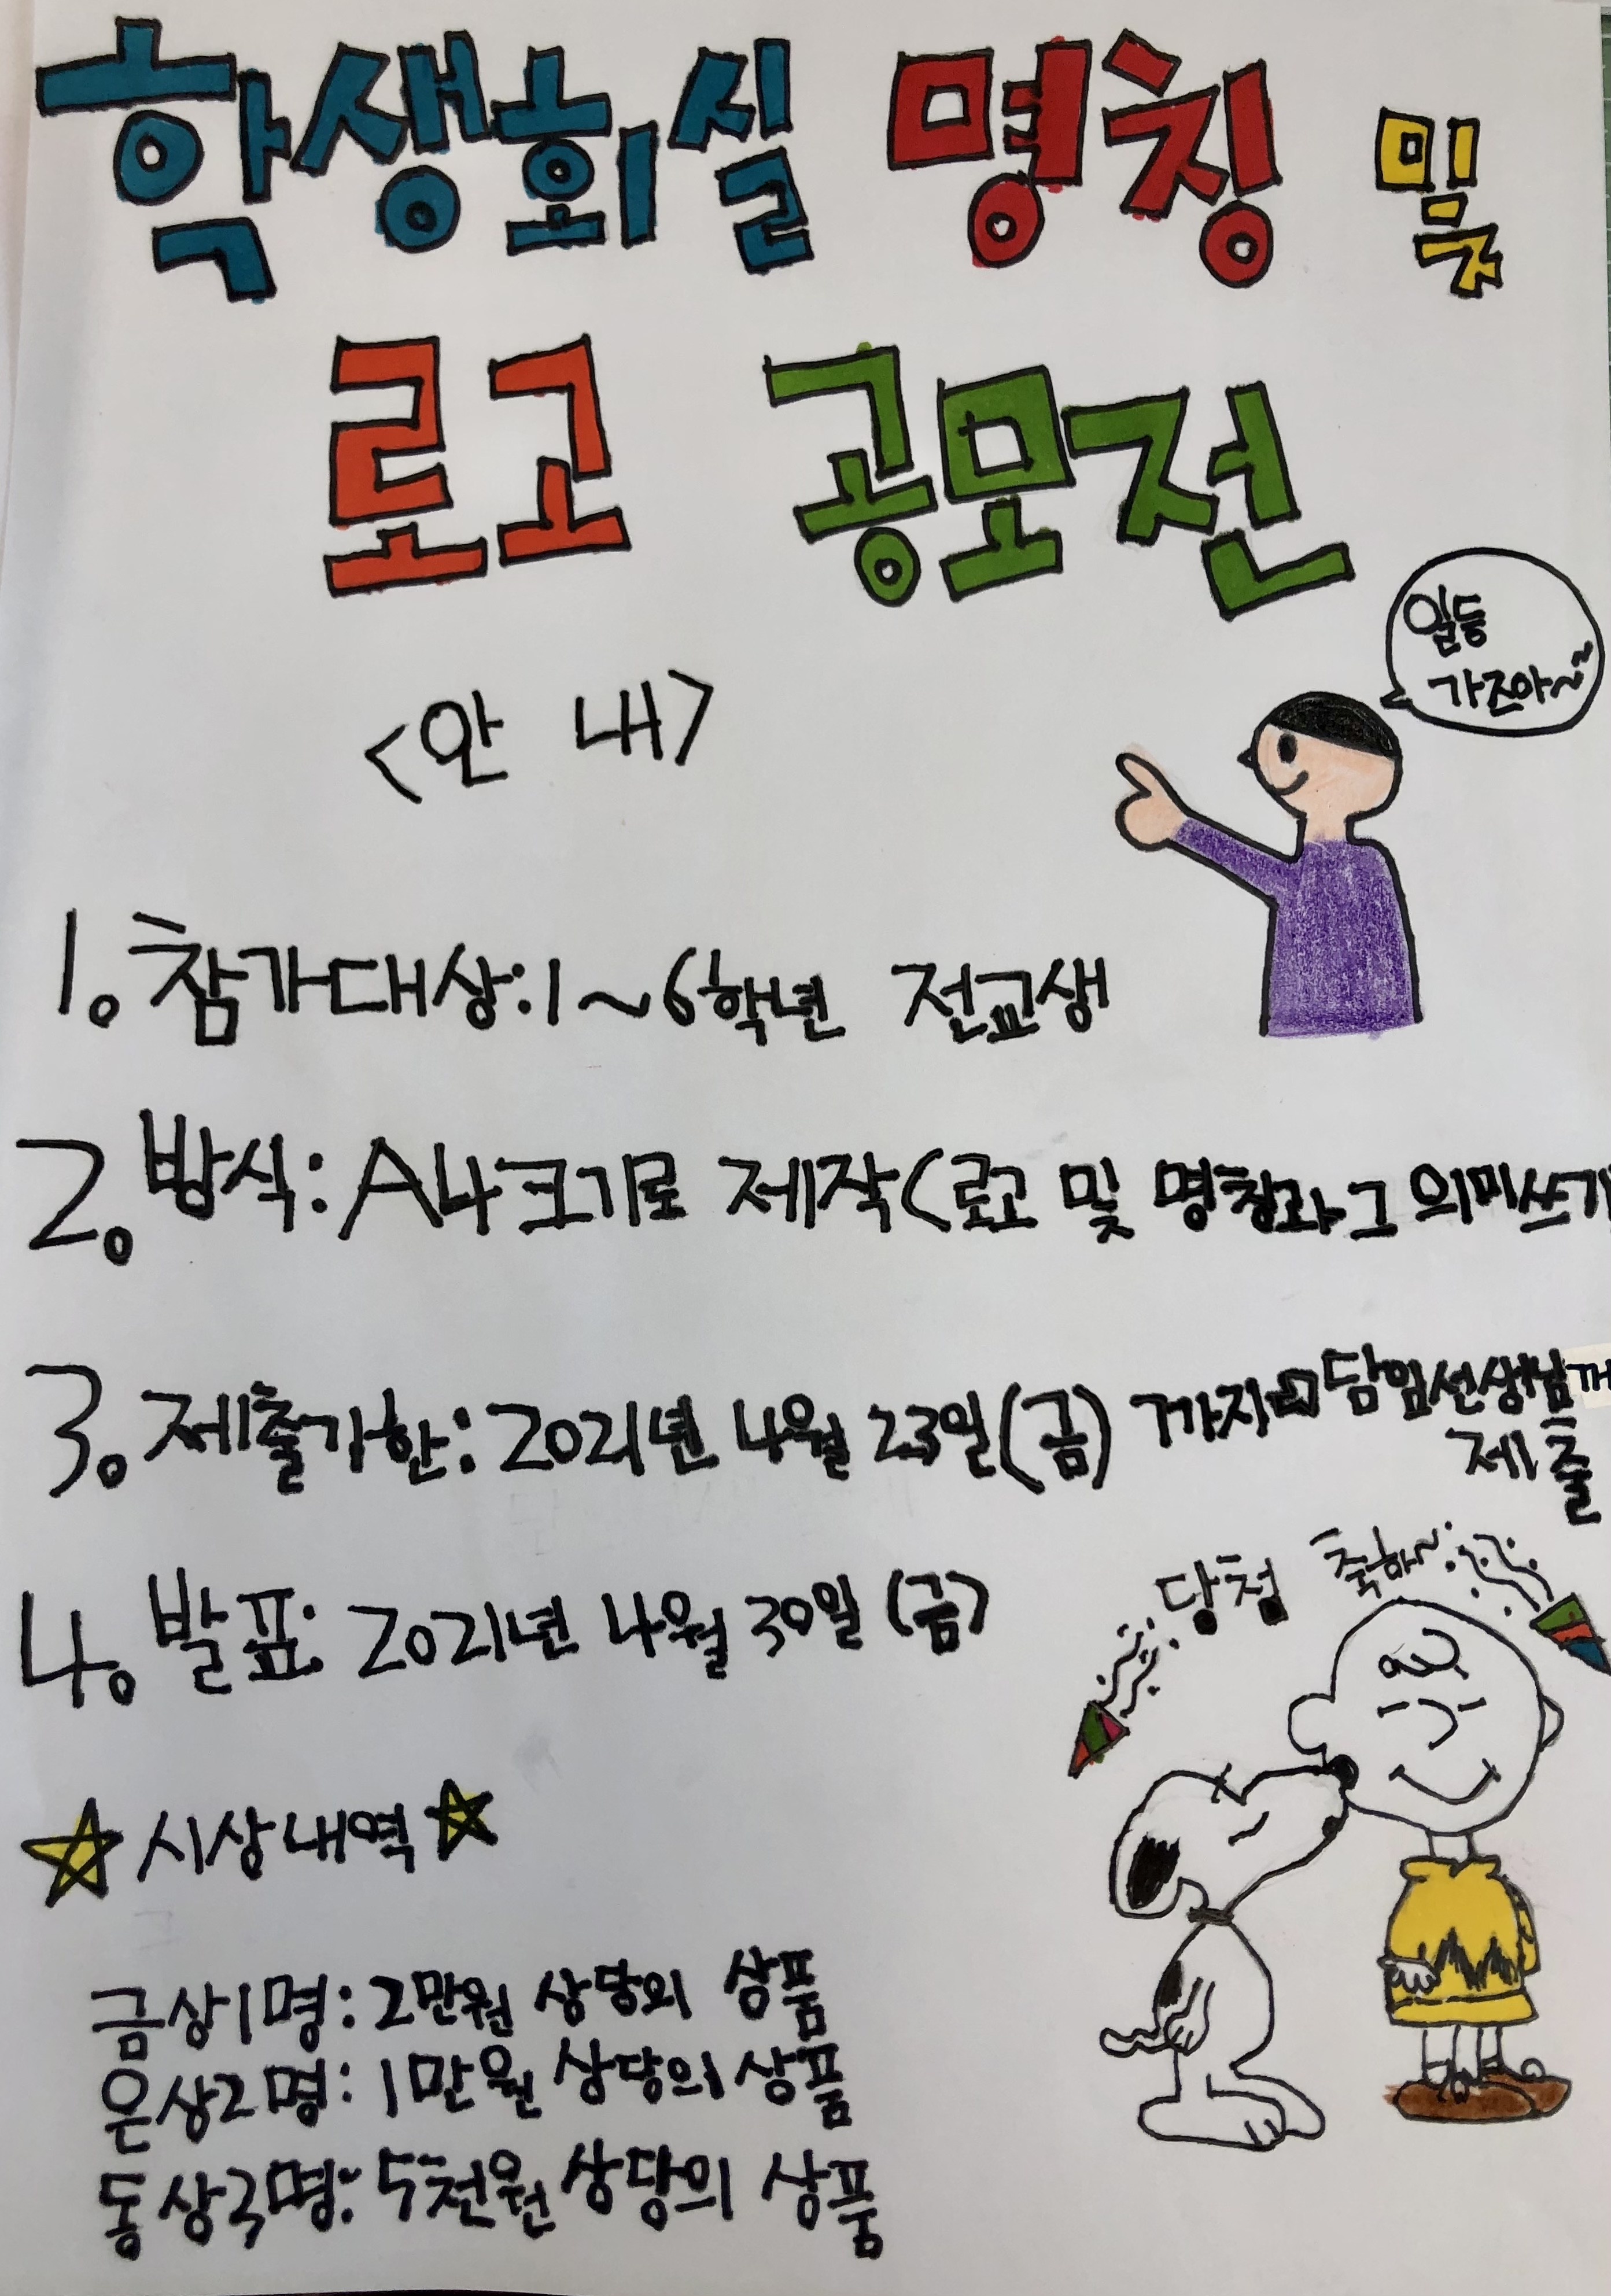 학생회실 명칭 및
로고 공모전
일등
가즈아~~
<안 내>
1. 참가대상:1~6학년 전교생
2. 방식: A4크기로 제작(로고 및 명칭과 그 의미쓰기
3. 제출기한: 2021년 4월 23일(금) 까지⇨담임선생님께
제출
4. 발표: 2021년 4월 30일(금)
당첨 축하~
☆시상내역☆
금상1명: 2만원 상당의 상품
은상2명: 1만원 상당의 상품
동상3명: 5천원 상당의 상품